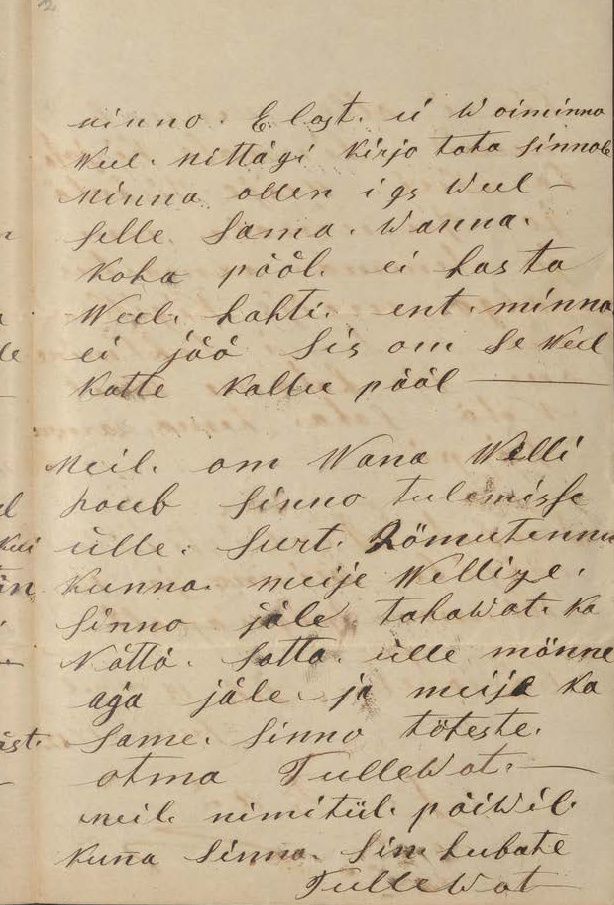 2
ninno. Elost. ei Woiminna
Weel. nittägi kirjo tata Sinnole
Minna ollen igs Weel —
Selle. Sama. Wanna.
Koha pääl. ei has ta
Weel. kahti. ent. minna
ei jää Sis om Se Weel
katte kallee pääl —
Meil. om Wana Welli
poub Sinno tulemisse
ülle. Surt. Römutennu
kunna. meije Wellize.
Sinno jäle tahawat. ka
Nättä. Satta. ülle männe
aga jäle. ja meije ka
Same. Sinno töteste.
otma TulleWat. —
meil. nimitül. päiwil.
kuña Sinna. Sin lubate
TulleWat